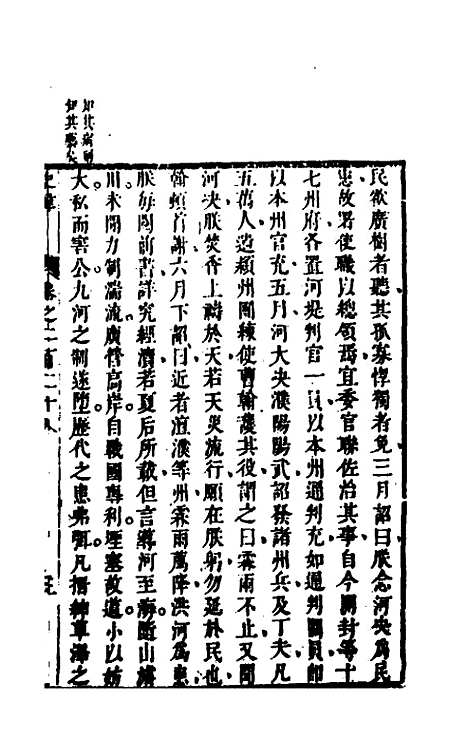 民欲廣樹者聽其孤寡惸獨者免三月詔曰朕念河決爲民
患故署使職以總領焉宜委官聯佐治其事自今開封等十
七州府各置河堤判官一員以本州通判充如通判闕員即
以本州官充五月河大決濮陽陽武詔發諸州兵及丁夫凡
五萬人遣潁州團練使曹翰護其役謂之曰霖雨不止又聞
河決朕焚香上禱於天若天災流行願在朕躬勿延於民也
翰頓首謝六月下詔曰近者澶濮等州霖雨薦降洪河爲患
朕每閱前書詳究經瀆若夏后所載但言導河至海隨山濬
川未聞力制湍流廣營高岸自戰國專利堙塞故道小以妨
大私而害公九河之制遂隳歷代之患弗弭凡搢紳草澤之
卷之一百二十八